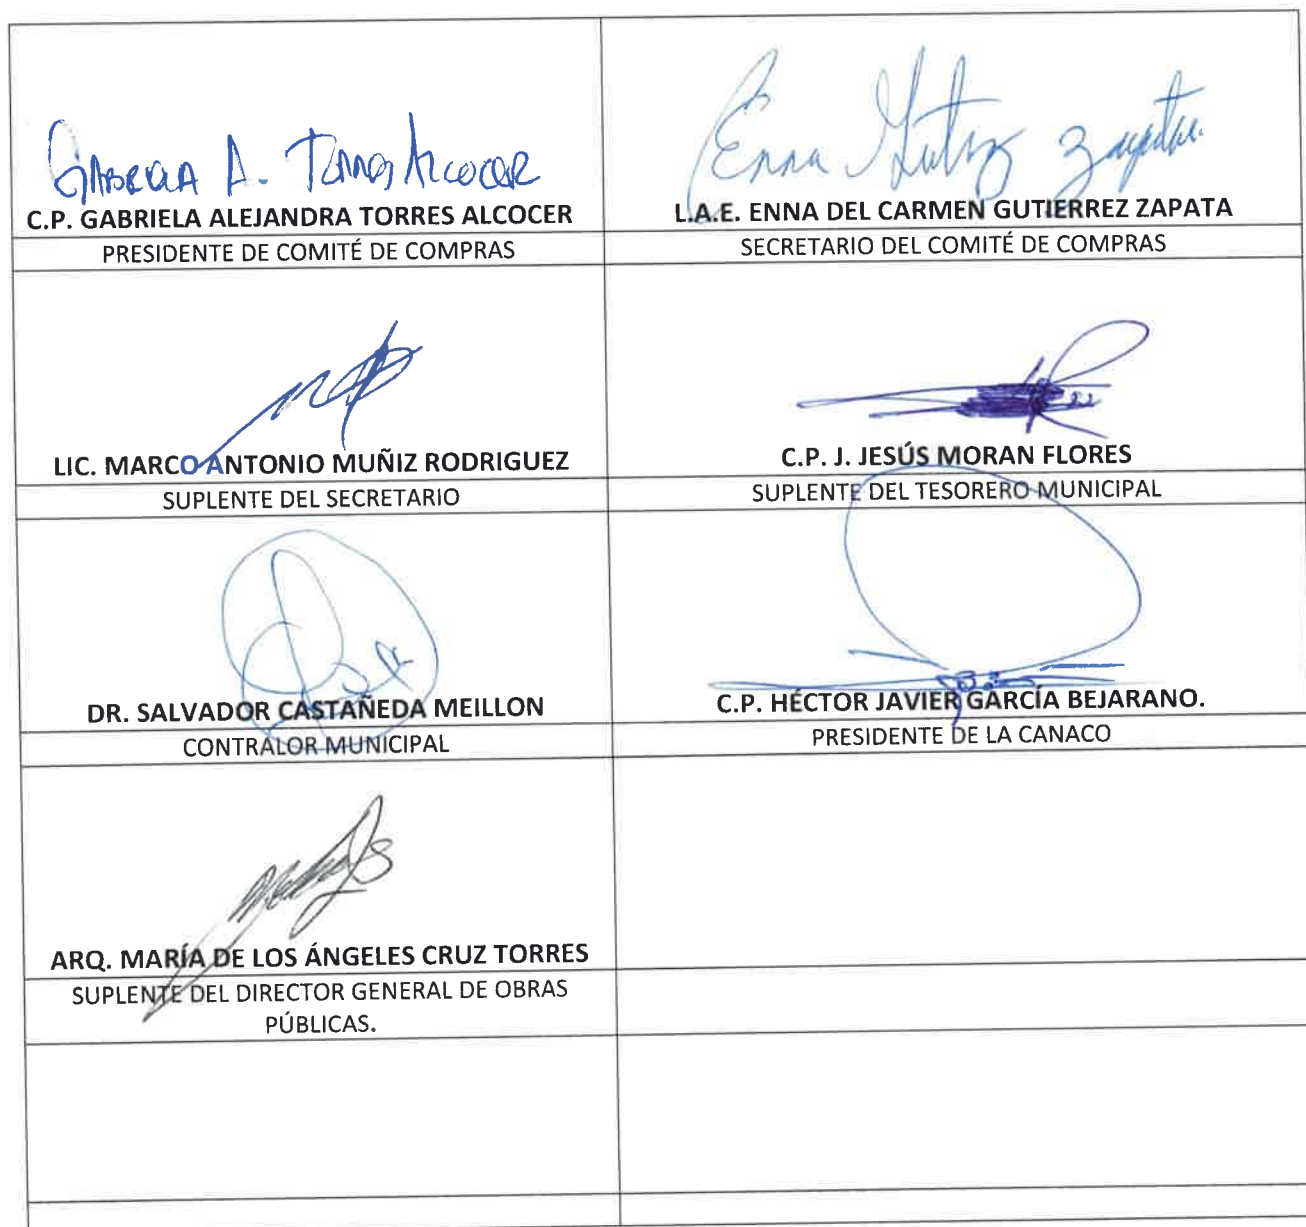 GABRIELA A. TORRES ALCOCER
Enna Gutrrz Zapata
C.P. GABRIELA ALEJANDRA TORRES ALCOCER
L.A.E. ENNA DEL CARMEN GUTIERREZ ZAPATA
PRESIDENTE DE COMITÉ DE COMPRAS
SECRETARIO DEL COMITÉ DE COMPRAS
LIC. MARCO ANTONIO MUÑIZ RODRIGUEZ
C.P. J. JESÚS MORAN FLORES
SUPLENTE DEL SECRETARIO
SUPLENTE DEL TESORERO MUNICIPAL
DR. SALVADOR CASTAÑEDA MEILLON
C.P. HÉCTOR JAVIER GARCÍA BEJARANO.
CONTRALOR MUNICIPAL
PRESIDENTE DE LA CANACO
ARQ. MARÍA DE LOS ÁNGELES CRUZ TORRES
SUPLENTE DEL DIRECTOR GENERAL DE OBRAS
PÚBLICAS.